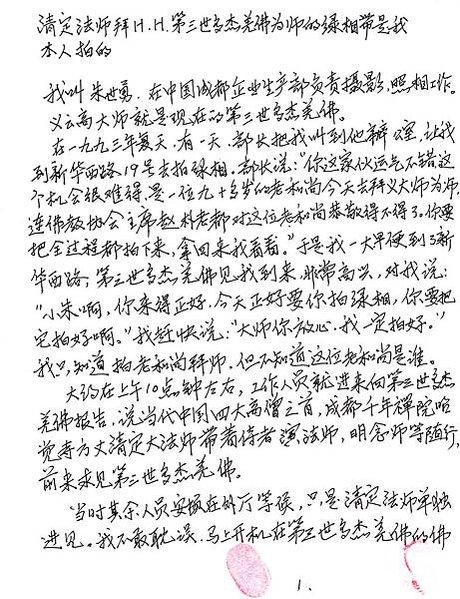 清定法师拜H.H.第三世多杰羌佛为师的録相带是我
本人拍的
我叫朱世勇，在中国成都企业生产部负责摄影，照相工作。
义云高大师就是现在的第三世多杰羌佛。
在一九九三年夏天，有一天，部长把我叫到他办公室，让我
到新华西路19号去拍録相。部长说：“你这家伙运气不错，这
个机会很难得，是一位九十多岁的老和尚今天去拜义大师为师，
连佛教协会主席赵朴老都对这位老和尚恭敬得不得了。你要
把全过程都拍下来，拿回来我看看。”于是我一大早便到了新
华西路，第三世多杰羌佛见我到来，非常高兴，对我说：
“小朱啊，你来得正好，今天正好要你拍録相，你要把
它拍好啊。”我赶快说：“大师你放心，我一定拍好。”
我只知道拍老和尚拜师，但不知道这位老和尚是谁。
大约在上午10点钟左右，工作人员就进来向第三世多杰
羌佛报告，说当代中国四大高僧之首，成都千年禅院昭
觉寺方丈清定大法师带着侍者演法师，明念师等随行，
前来求见第三世多杰羌佛。
当时其余人员安顿在外厅等候，只是清定法师单独
进见。我不敢耽误，马上开机在第三世多杰羌佛的佛
1.